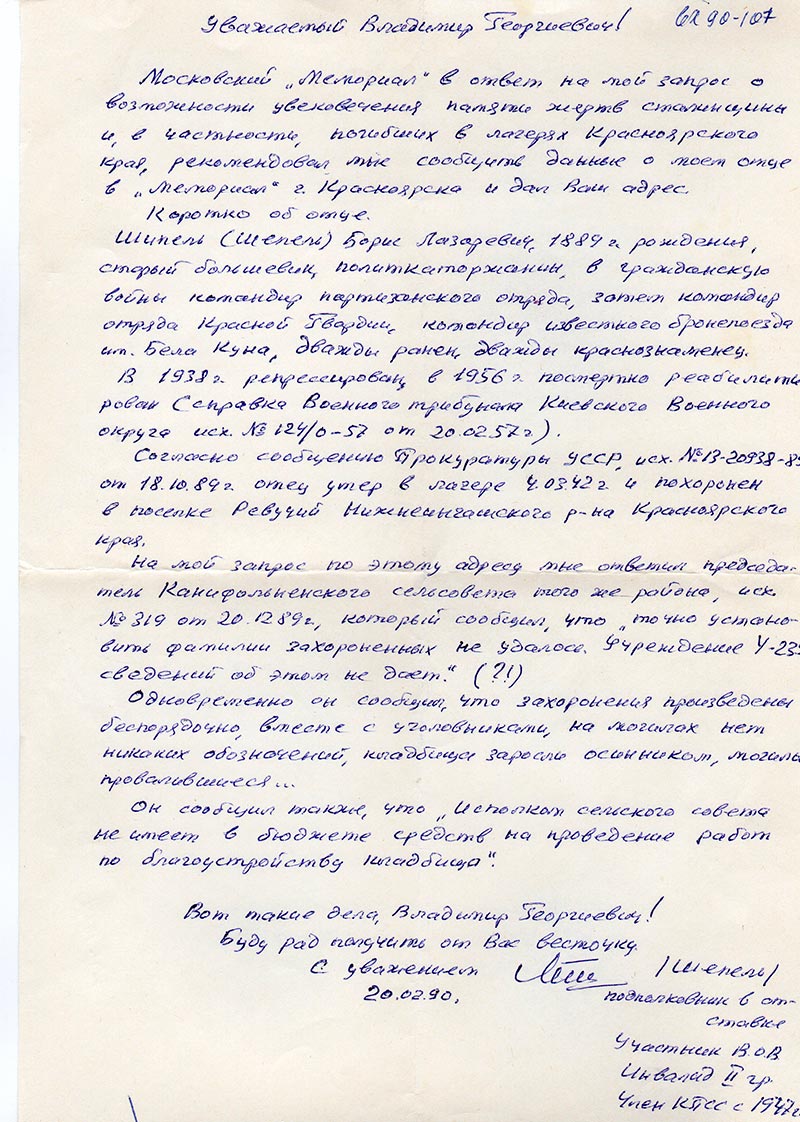 Уважаемый Владимир Георгиевич! вх 90-107
Московский „Мемориал" в ответ на мой запрос о
возможности увековечения памяти жертв сталинщины
и, в частности, погибших в лагерях Красноярского
края, рекомендовал мне сообщить данные о моем отце
в „Мемориал" г. Красноярска и дал Ваш адрес.
Коротко об отце.
Шипель (Шепель) Борис Лазаревич, 1889 г. рождения,
старый большевик, политкаторжанин, в гражданскую
войны командир партизанского отряда, затем командир
отряда Красной Гвардии, командир известного бронепоезда
им. Бела Куна, дважды ранен, дважды краснознаменец.
В 1938 г. репрессирован, в 1956 г. посмертно реабилити
рован (справка Военного трибунала Киевского Военного
округа исх. № 124/0-57 от 20.02.57 г.).
Согласно сообщению Прокуратуры УССР, исх. № 13-20938-
от 18.10.89 г. отец умер в лагере 4.03.42 г. и похоронен
в поселке Ревучий Нижнеингашского р-на Красноярского
края.
На мой запрос по этому адресу мне ответил председа-
тель Канифольненского сельсовета того же района, исх.
№ 319 от 20.12.89 г., который сообщил, что „точно устано-
вить фамилии захороненных не удалось. Учреждение У-235
сведений об этом не дает." (?!)
Одновременно он сообщил, что захоронения произведены
беспорядочно, вместе с уголовниками, на могилах нет
никаких обозначений, кладбища заросли осинником, могилы
провалившиеся...
Он сообщил также, что „Исполком сельского совета
не имеет в бюджете средств на проведение работ
по благоустройству кладбища".
Вот такие дела, Владимир Георгиевич!
Буду рад получить от Вас весточку.
С уважением /Шепель/
20.02.90.
подполковник в от-
ставке
Участник В.О.В.
Инвалид II гр.
Член КПСС с 1947 г.